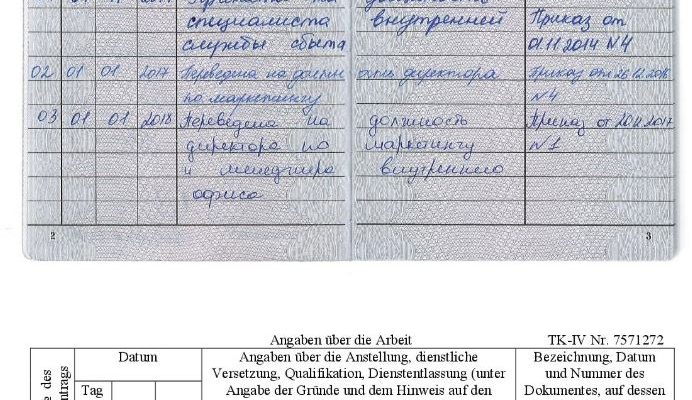 специалиста внутренней Приказ от
службы сбыта 01.11.2014 N4
02 01 01 2017 Переведена на должн ость директора Приказ от 26.12.2016
по маркетингу N4
03 01 01 2018 Переведена на должность Приказ от 20.12.2017
директора по маркетингу N1
и менеджера внутреннего
офиса
2 3
Angaben über die Arbeit TK-IV Nr. 7571272
Datum Angaben über die Anstellung, dienstliche Bezeichnung, Datum
Versetzung, Qualifikation, Dienstentlassung (unter und Nummer des
Tag Angabe der Gründe und dem Hinweis auf den Dokumentes, auf dessen
des